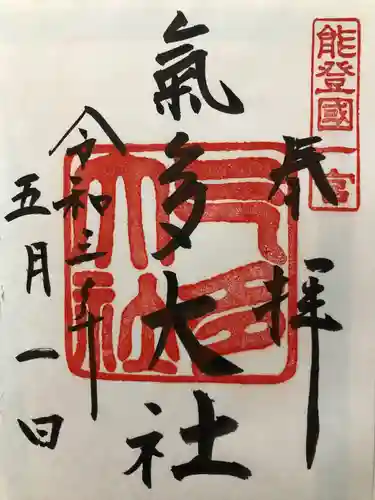 能登國一宮
奉拝
氣多大社
氣多大社
令和三年
五月一日